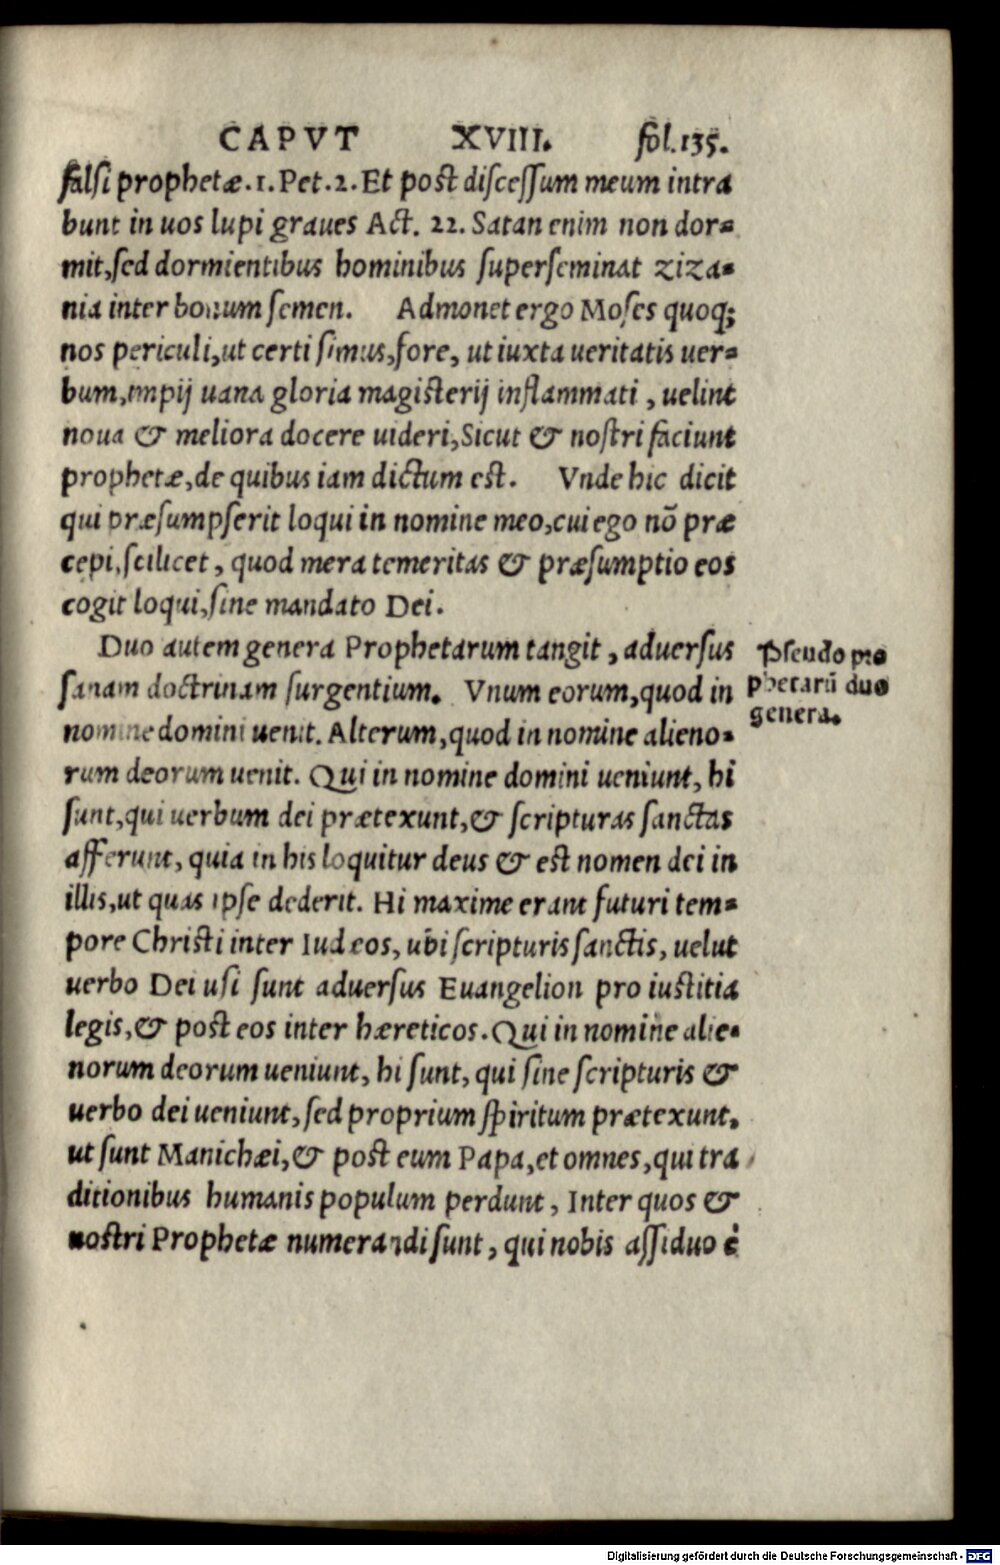 CAPVT XVIII. fol.135.
falsi prophetæ.1.Pet.2.Et post discessum meum intra
bunt in uos lupi graues Act. 22. Satan enim non dor=
mit,sed dormientibus hominibus superseminat ziza=
nia inter bonum semen. Admonet ergo Moses quoq;
nos periculi,ut certi simus,fore, ut iuxta ueritatis uer=
bum,impij uana gloria magisterij inflammati, uelint
noua & meliora docere uideri,Sicut & nostri faciunt
prophetæ,de quibus iam dictum est. Vnde hic dicit
qui præsumpserit loqui in nomine meo,cui ego nō præ
cepi,scilicet, quod mera temeritas & præsumptio eos
cogit loqui,sine mandato Dei.
Duo autem genera Prophetarum tangit, aduersus
sanam doctrinam surgentium. Vnum eorum,quod in
nomine domini uenit. Alterum,quod in nomine alieno=
rum deorum uenit. Qui in nomine domini ueniunt, hi
sunt,qui uerbum dei prætexunt,& scripturas sanctas
afferunt, quia in his loquitur deus & est nomen dei in
illis,ut quas ipse dederit. Hi maxime erant futuri tem=
pore Christi inter Iudæos, ubi scripturis sanctis, uelut
uerbo Dei usi sunt aduersus Euangelion pro iustitia
legis,& post eos inter hæreticos.Qui in nomine alie=
norum deorum ueniunt, hi sunt, qui sine scripturis &
uerbo dei ueniunt,sed proprium spiritum prætexunt.
ut sunt Manichæi,& post eum Papa,et omnes,qui tra
ditionibus humanis populum perdunt, Inter quos &
nostri Prophetæ numerandi sunt, qui nobis assiduo è
Pseudo pro
phetarū duo
genera.
Digitalisierung gefördert durch die Deutsche Forschungsgemeinschaft - DFG